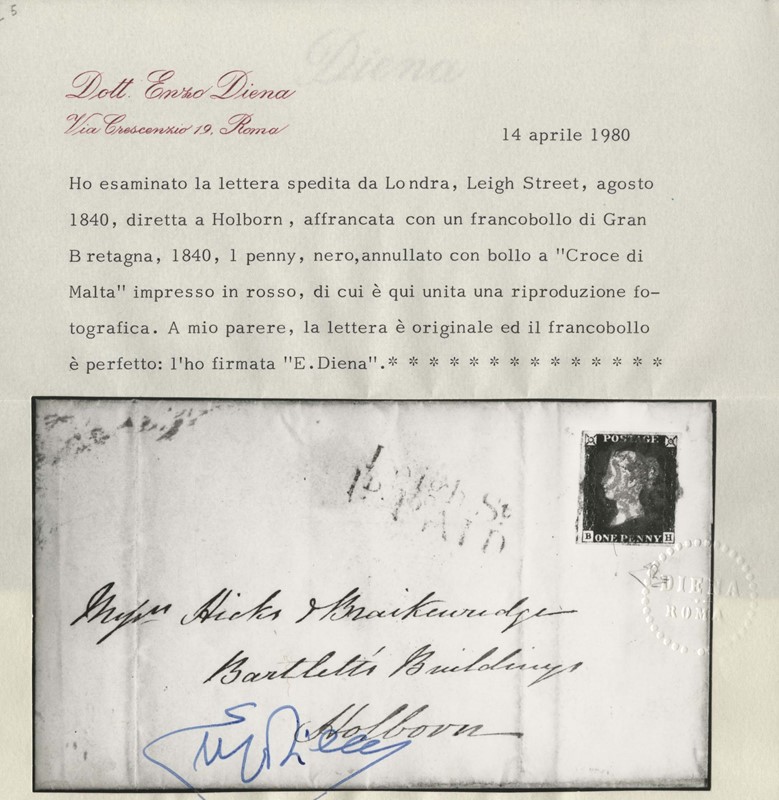 Diena
5
Dott. Enzo Diena
Via Crescenzio 19, Roma
14 aprile 1980
Ho esaminato la lettera spedita da Londra, Leigh Street, agosto
1840, diretta a Holborn, affrancata con un francobollo di Gran
Bretagna, 1840, 1 penny, nero,annullato con bollo a "Croce di
Malta" impresso in rosso, di cui è qui unita una riproduzione fo-
tografica. A mio parere, la lettera è originale ed il francobollo
è perfetto: l'ho firmata "E.Diena".* * * * * * * * * * * * * *
POSTAGE
B ONE PENNY H
Leigh St
PAID
DIENA
ROMA
Messrs Hicks & Braikenridge
Bartlett's Buildings
Holborn